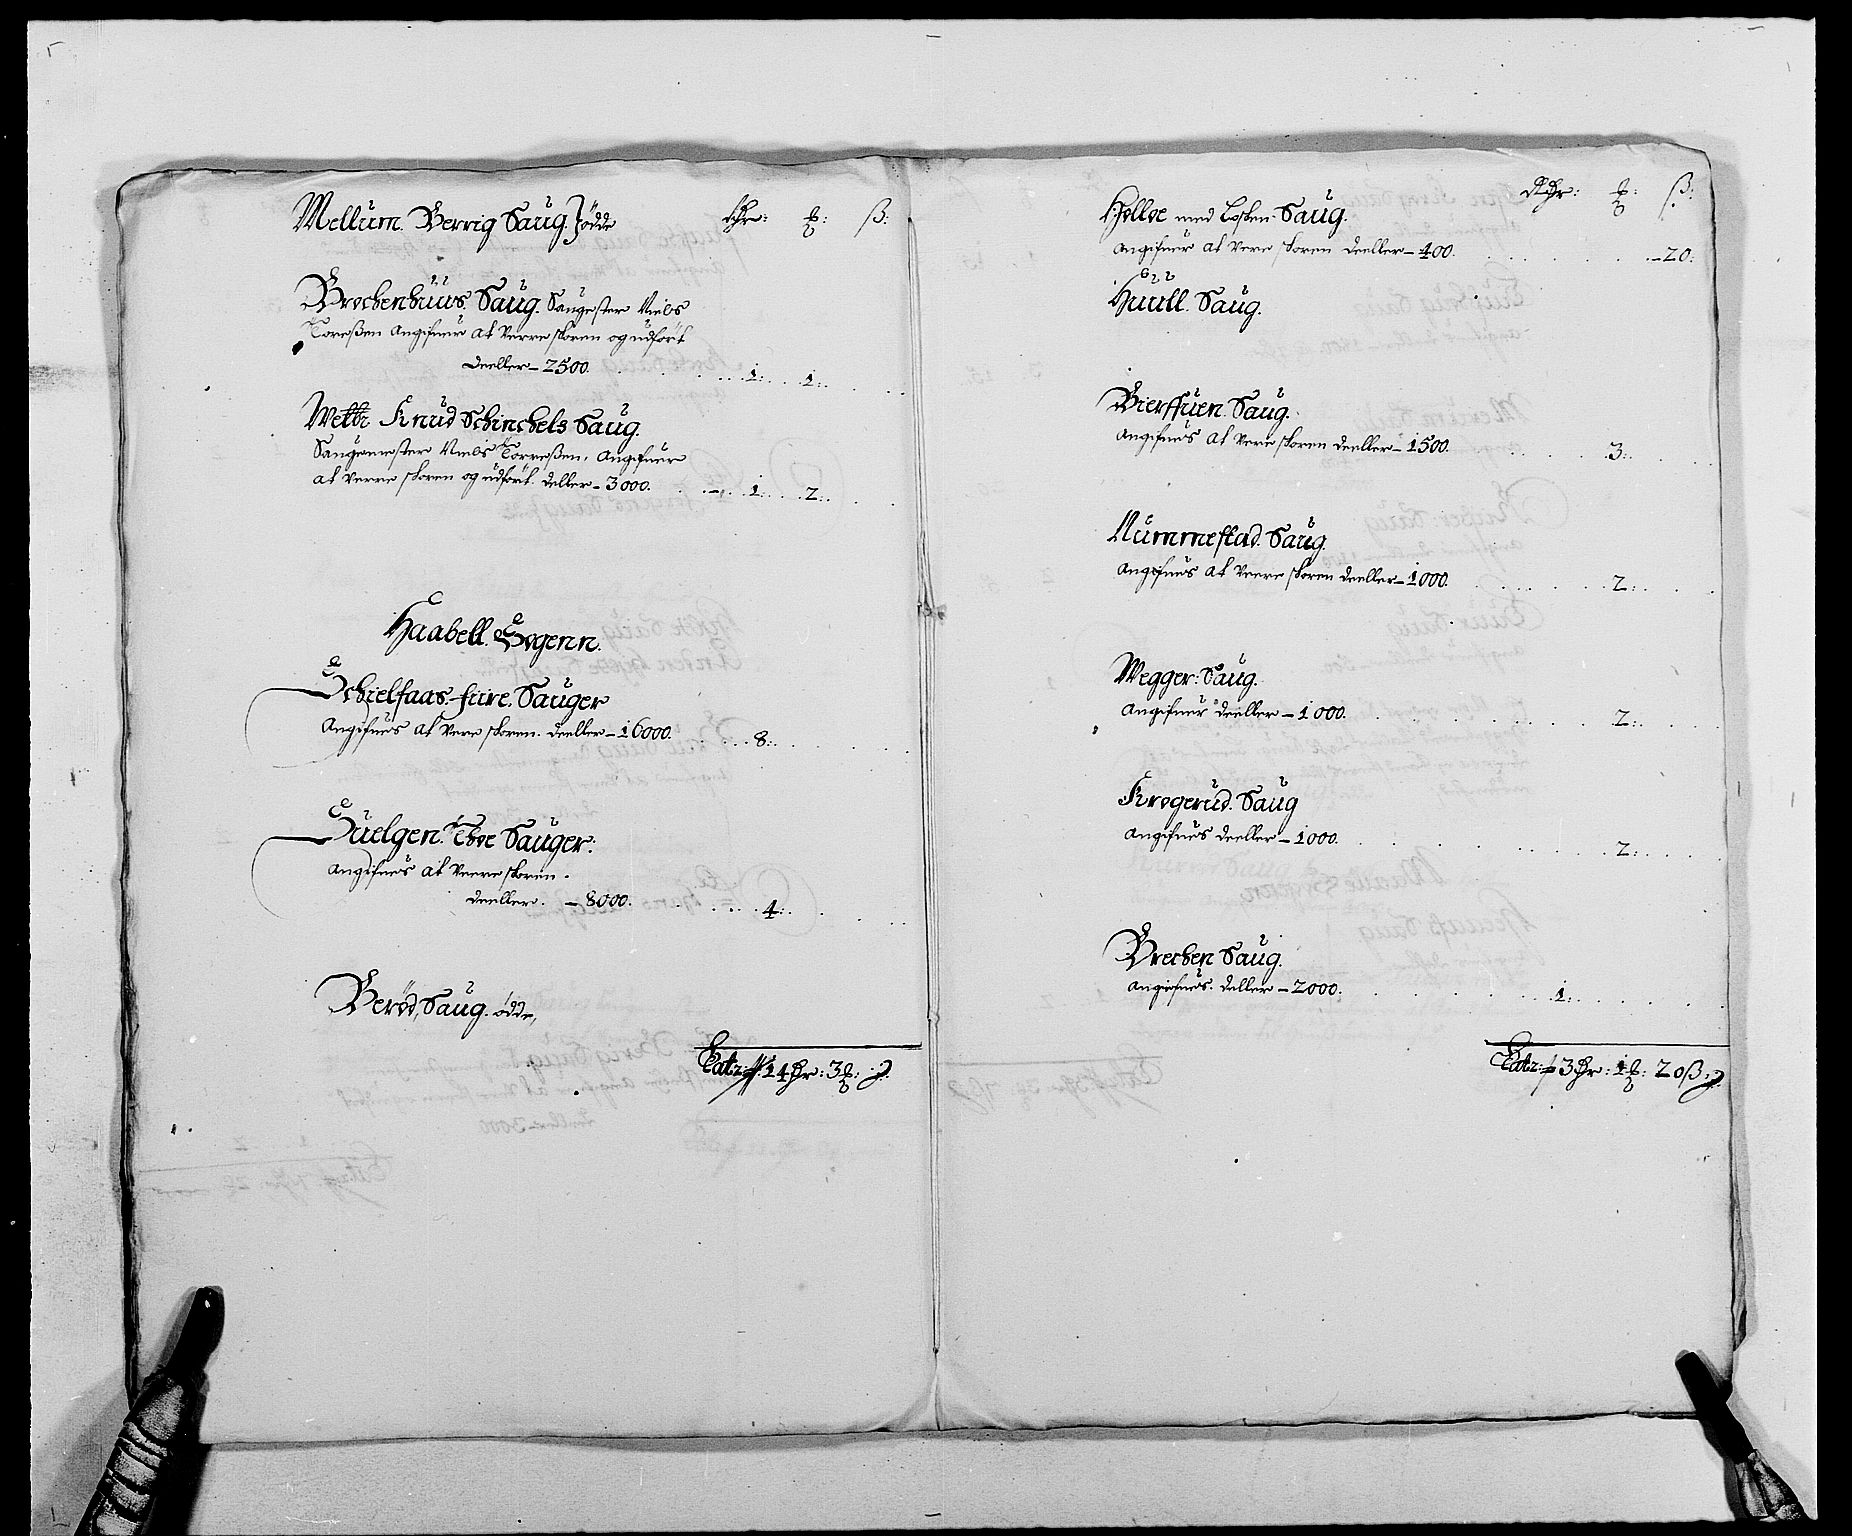 Mellum. Berrig Saug. Jødde
dhr: ₰: ß:
Brechenhüüs. Saug. Saugester Niels
Toreßen Angifuer at Verre skoren og udført
deeller – 2500. 1: 1:
Wettr Knud Schinchels Saug.
Saugemester Niels Torreßen, Angifuer
at verre skoren og udført. deller – 3000. 1: 2:
Haabell. Sogenn.
Schielfaas. fiire. Sauger
Angifues at Vere skoren. deeller – 16000. 8:
Suelgen. Thoe Sauger:
Angifues at Veere skoren.
deeller. – 8000. 4:
Berød, Saug. ødde,
Latr: 14 dhr: 3 ₰:
Rdhr: ₰: ß:
Holloe med Losken Saug.
Angifuer at Vere skoren deeller – 400. – 20:
Huull. Saug.
Bierffuen. Saug.
Angifues at Vere skoren deeller – 1500. 3:
Nummestad. Saug.
Angifues at Veere skoren deeller – 1000. 2:
Wegger: Saug.
Angifuer deeller – 1000. 2:
Krogerud. Saug
Angifues deeller – 1000. 2:
Brechen Saug.
Angifues. deller – 2000. 1:
Latr: 3 dhr: 1 ₰: 20 ß: